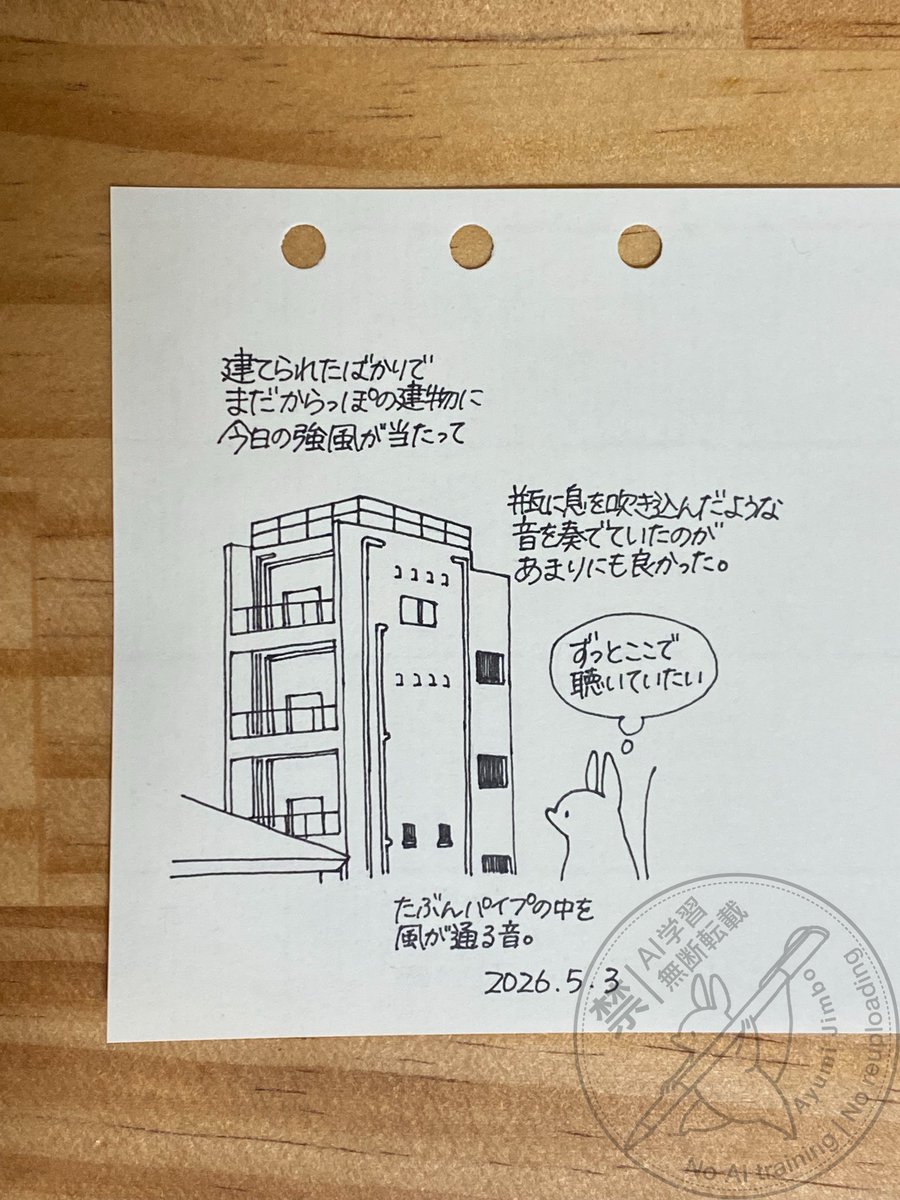 建てられたばかりで
まだからっぽの建物に
今日の強風が当たって
瓶に息を吹き込んだような
音を奏でていたのが
あまりにも良かった。
ずっとここで
聴いていたい
たぶんパイプの中を
風が通る音。
2026.5.3
禁|AI学習
無断転載
Ayumi Jimbo
No AI training | No reuploading